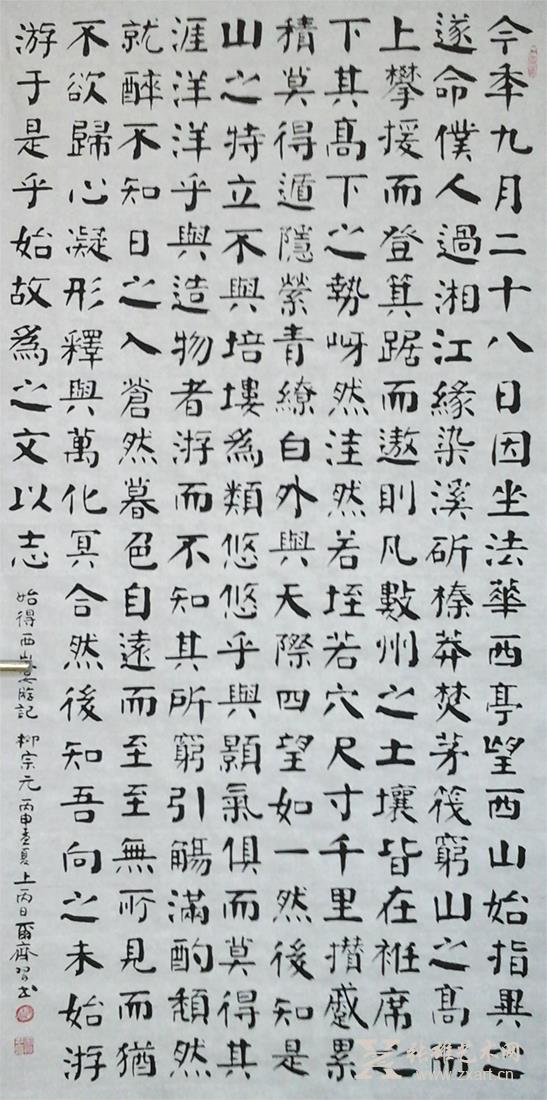 今秊九月二十八日因坐法華西亭望西山始指異之
遂命僕人過湘江緣染溪斫榛莽焚茅筏窮山之高而
上攀援而登箕踞而遨則凡數州之土壤皆在衽席之
下其高下之勢岈然洼然若垤若穴尺寸千里攢蹙累
積莫得遁隱縈青繚白外與天際四望如一然後知是
山之特立不與培塿為類悠悠乎與顥氣俱而莫得其
涯洋洋乎與造物者游而不知其所窮引觴滿酌頹然
就醉不知日之入蒼然暮色自遠而至至無所見而猶
不欲歸心凝形釋與萬化冥合然後知吾向之未始游
游于是乎始故為之文以志 始得西山宴游記 柳宗元 丙申孟夏上丙日爾齋習書
张雄艺术网
www.zxart.cn